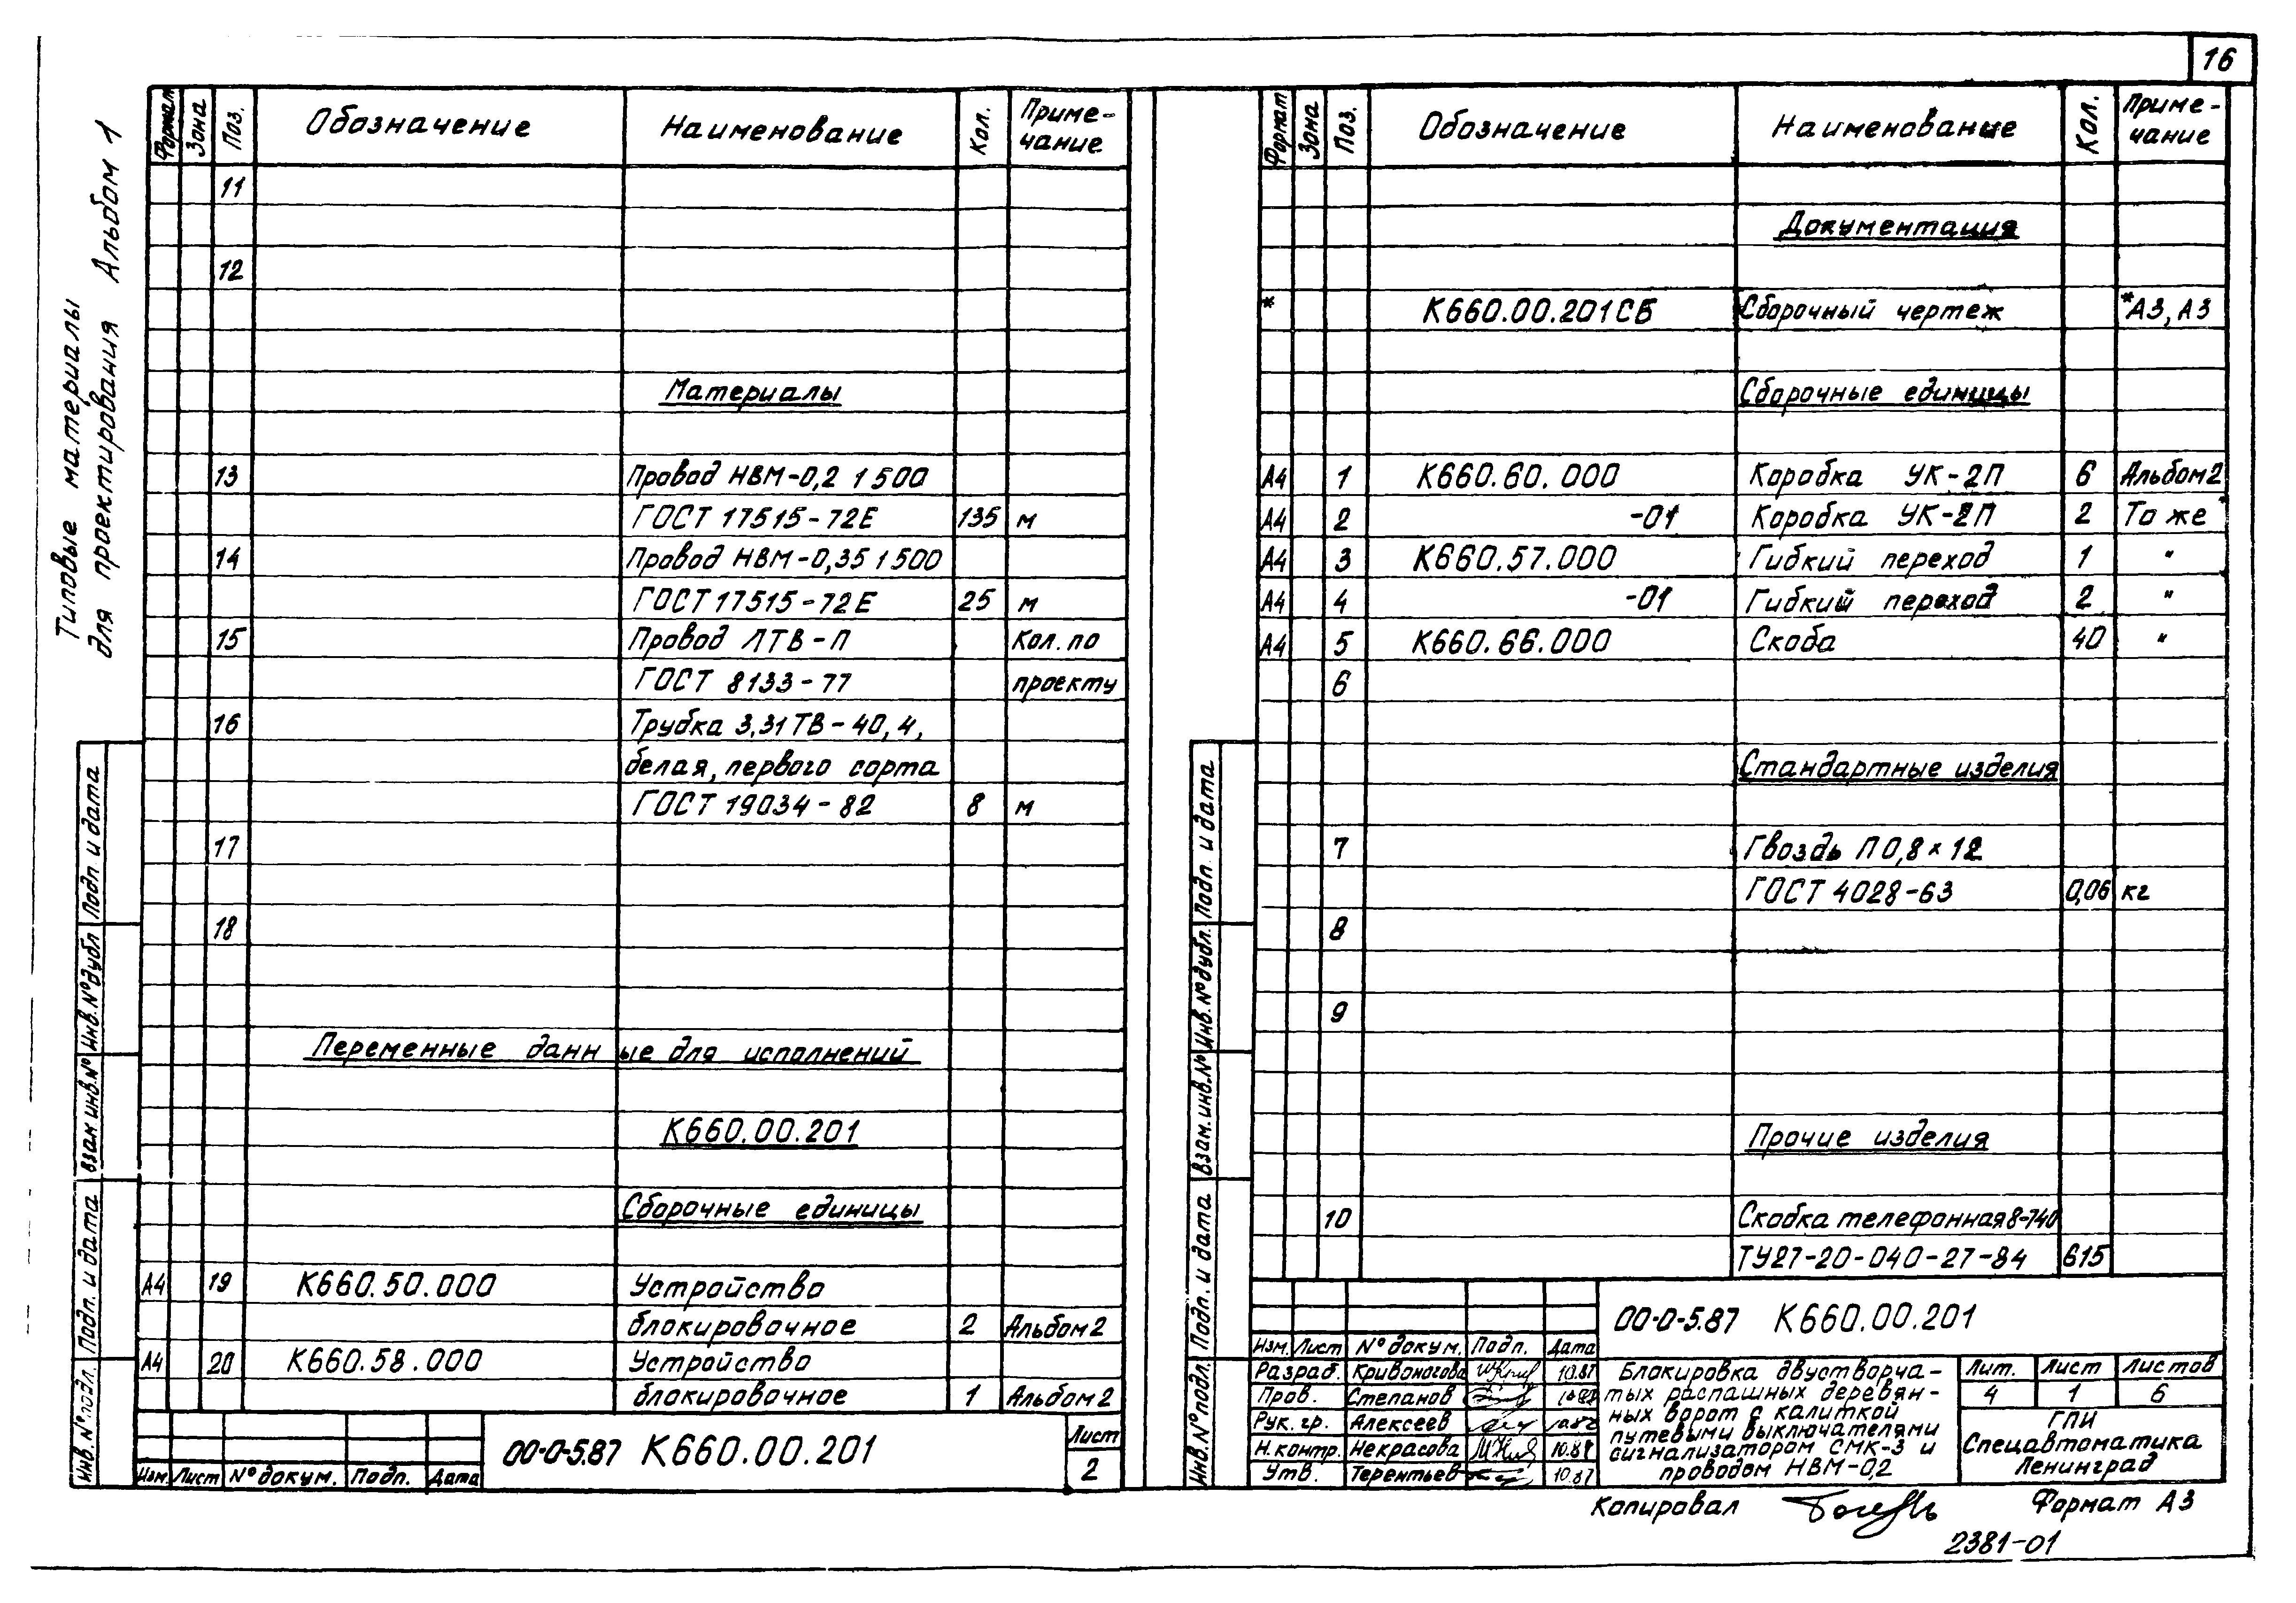 16
Типовые материалы
для проектирования Альбом 1
Формат Зона Поз. Обозначение Наименование Кол. Приме-
чание
11
12
Материалы
13 Провод НВМ-0,2 1 500
ГОСТ 17515-72Е 135 м
14 Провод НВМ-0,35 1 500
ГОСТ 17515-72Е 25 м
15 Провод ЛТВ-П Кол. по
ГОСТ 8133-77 проекту
16 Трубка 3,31ТВ-40, 4,
белая, первого сорта
ГОСТ 19034-82 8 м
17
18
Переменные данные для исполнений
К660.00.201
Сборочные единицы
А4 19 К660.50.000 Устройство
блокировочное 2 Альбом 2
А4 20 К660.58.000 Устройство
блокировочное 1 Альбом 2
Изм. Лист № докум. Подп. Дата
00-0-5.87 К660.00.201
Лист
2
Инв. № подл. Подп. и дата Взам инв. № Инв. № дубл Подп и дата
Формат Зона Поз. Обозначение Наименование Кол. Приме-
чание
Документация
* К660.00.201СБ Сборочный чертеж *А3, А3
Сборочные единицы
А4 1 К660.60.000 Коробка УК-2П 6 Альбом 2
А4 2 -01 Коробка УК-2П 2 То же
А4 3 К660.57.000 Гибкий переход 1 "
А4 4 -01 Гибкий переход 2 "
А4 5 К660.66.000 Скоба 40 "
6
Стандартные изделия
7 Гвоздь П 0,8×12
ГОСТ 4028-63 0,06 кг
8
9
Прочие изделия
10 Скобка телефонная 8-740
ТУ27-20-040-27-84 615
Инв. № подл. Подп. и дата Взам. инв. № Инв. № дубл. Подп. и дата
00-0-5.87 К660.00.201
Изм. Лист № докум. Подп. Дата
Разраб. Кривоногова 10.87
Пров. Степанов
Рук. гр. Алексеев
Н. контр. Некрасова 10.87
Утв. Терентьев 10.87
Блокировка двустворча-
тых распашных деревян-
ных ворот с калиткой
путевыми выключателями
сигнализатором СМК-3 и
проводом НВМ-0,2
Лит. Лист Листов
4 1 6
ГПИ
Спецавтоматика
Ленинград
Копировал Формат А3
2381-01